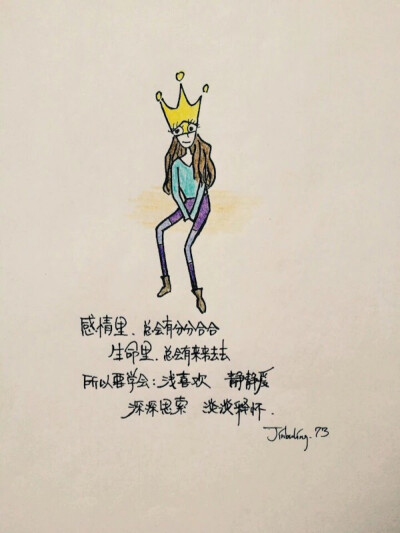 感情里、总会有分分合合
生命里、总会有来来去去
所以要学会：浅喜欢 静静爱
深深思索 淡淡释怀.